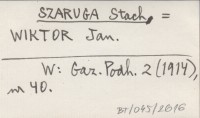 SZARUGA Stach, =
WIKTOR Jan.
W: Gaz. Podh. 2 (1914),
nr 40.
BJ/045/2616